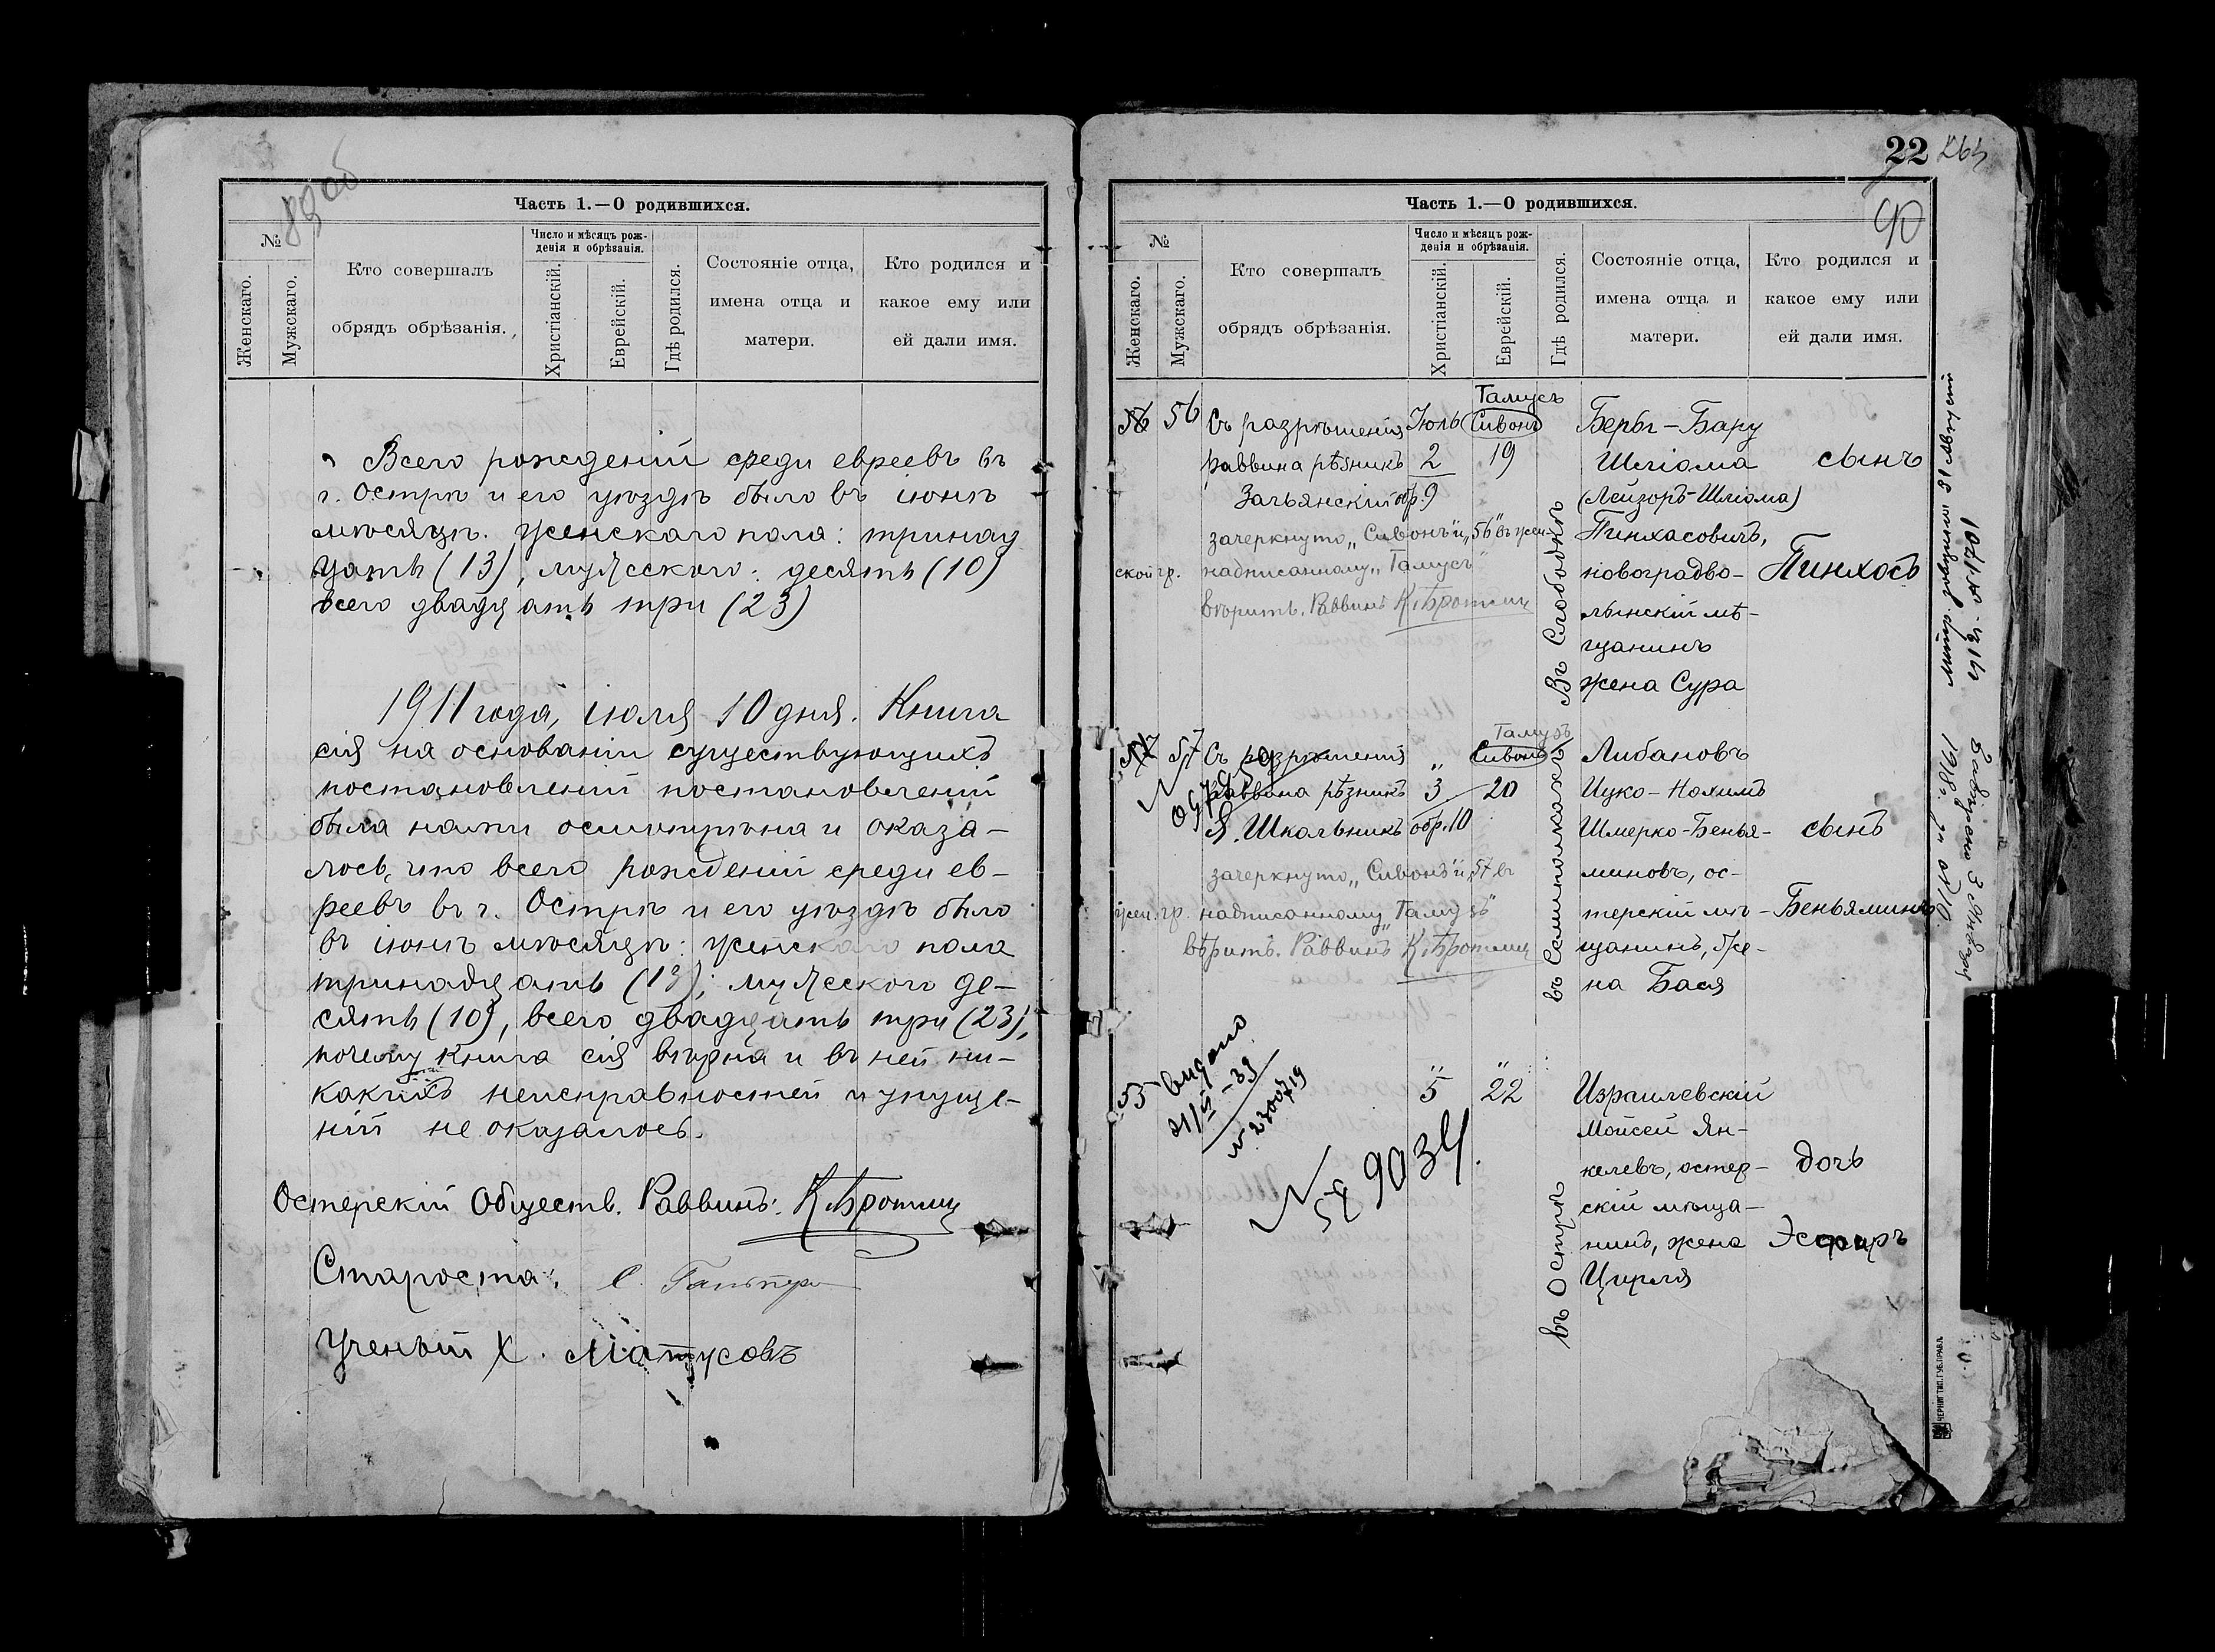 89 об
Часть 1.—О родившихся.
№
Женскаго.
Мужскаго.
Кто совершалъ
обрядъ обрѣзанія.
Число и мѣсяцъ рож-
денія и обрѣзанія.
Христіанскій.
Еврейскій.
Гдѣ родился.
Состояніе отца,
имена отца и
матери.
Кто родился и
какое ему или
ей дали имя.
Всего рожденій среди евреевъ въ
г. Острѣ и его уѣздѣ было въ іюнѣ
мѣсяцѣ. Женскаго пола: тринад
цать (13), мужескаго: десять (10)
всего двадцать три (23)
1911 года, іюля 10 дня. Книга
сія на основаніи существующихъ
постановленій постановленій
была нами осмотрѣна и оказа-
лось, что всего рожденій среди ев-
реевъ въ г. Острѣ и его уѣздѣ было
въ іюнѣ мѣсяцѣ: женскаго пола
тринадцать (13), мужескаго де-
сять (10), всего двадцать три (23),
почему книга сія вѣрна и въ ней ни-
какихъ неисправностей и упуще-
ній не оказалось.
Остерскій Обществ. Раввинъ:
Староста: С.
Ученый Х. Матусовъ
22 264
90
Часть 1.—О родившихся.
№
Женскаго.
Мужскаго.
Кто совершалъ
обрядъ обрѣзанія.
Число и мѣсяцъ рож-
денія и обрѣзанія.
Христіанскій.
Еврейскій.
Гдѣ родился.
Состояніе отца,
имена отца и
матери.
Кто родился и
какое ему или
ей дали имя.
Тамусъ
56 56 Съ разрѣшенія Іюль Сивонъ
раввина рѣзникъ 2 19
Зальянскій обр. 9
зачеркнуто „Сивонъ" и „56" въ жен-
ской гр. надписанному „Тамусъ"
вѣрить. Раввинъ
Въ Слободкѣ
Шліома
(Лейзоръ-Шліома)
Пинхасовичъ,
новоградво-
лынскій мѣ-
щанинъ
жена Сура
сынъ
Пинхосъ
Тамузъ
57 57 Съ разрѣшенія „ Сивонъ
раввина рѣзникъ 3 20
Я. Школьникъ обр. 10
зачеркнуто „Сивонъ" и „57" въ
жен. гр. надписанному „Тамузъ"
вѣрить. Раввинъ
въ Семиполкахъ
Либановъ
Ицко-Нохимъ
Шмерко-Бенья-
миновъ, ос-
терскій мѣ-
щанинъ, же-
на Бася
сынъ
Беньяминъ
55 „ „
5 22
видано
21/II-39
№ 9034
въ Острѣ
Израилевскій
Мойсей Ян-
келевъ, остер-
скій мѣща-
нинъ, жена
Цирля
дочь
Эсфирь
1918 г. за №10.
ЧЕРНИГ. ТИП. ГУБ. ПРАВЛ.